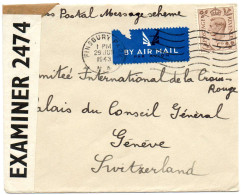 Postal Message scheme
EXAMINER 2474
FINSBURY
1 PM
1943
BY AIR MAIL
Comité International de la Croix-
Rouge
Palais du Conseil Général
Genève
Switzerland